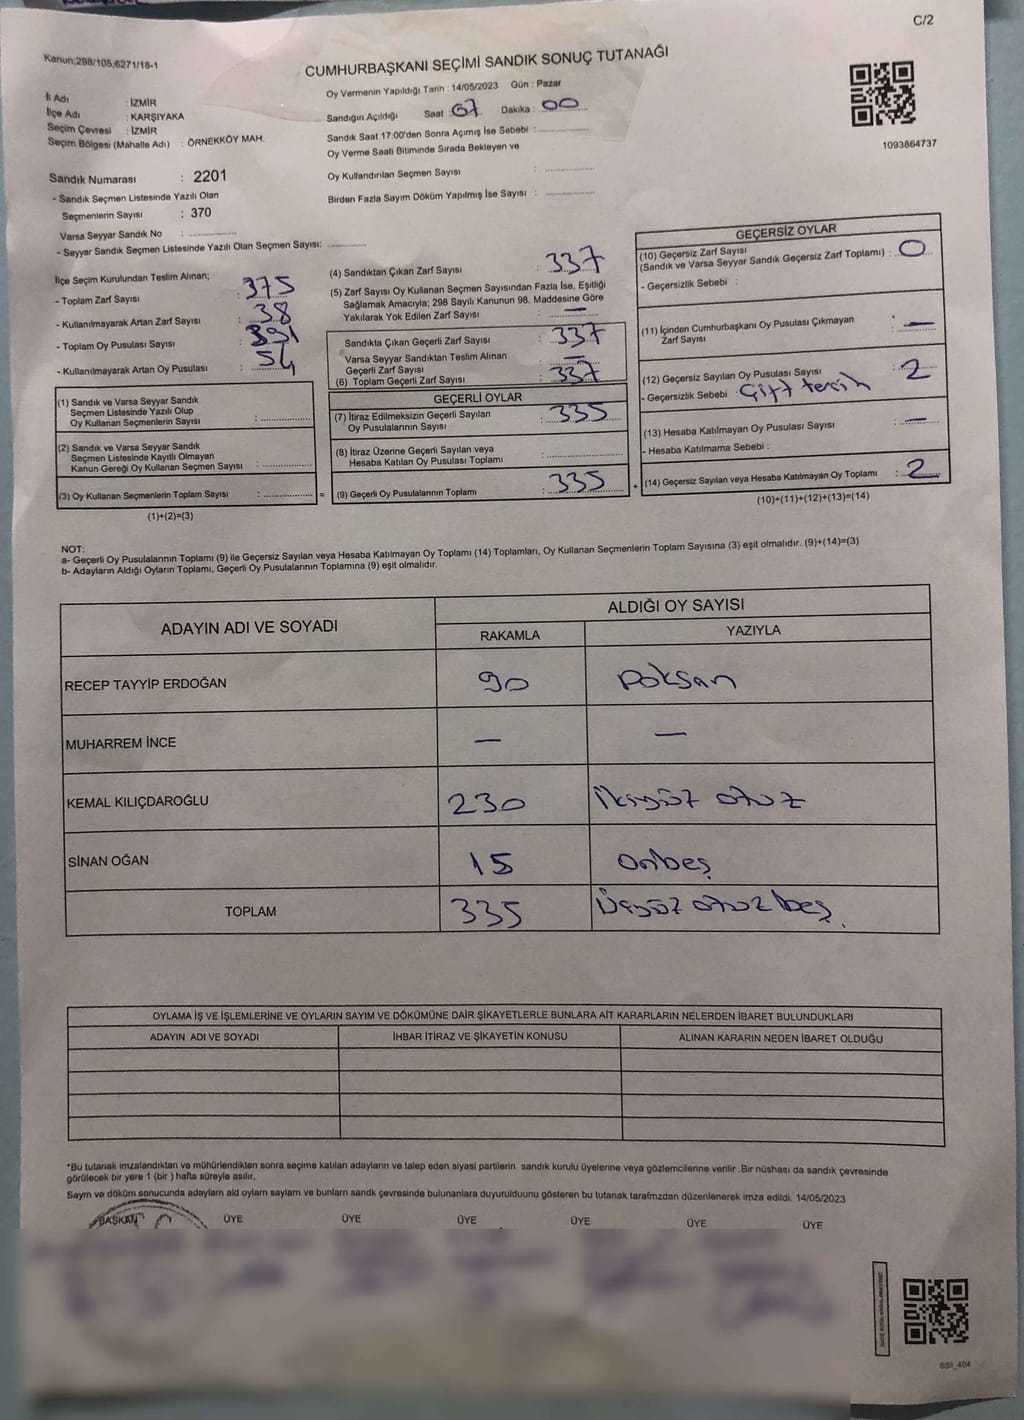 C/2
Kanun;298/105;6271/18-1
CUMHURBAŞKANI SEÇİMİ SANDIK SONUÇ TUTANAĞI
Oy Vermenin Yapıldığı Tarih : 14/05/2023 Gün : Pazar
Sandığın Açıldığı Saat : 07 Dakika : 00
Sandık Saat 17:00'den Sonra Açımış İse Sebebi :
Oy Verme Saati Bitiminde Sırada Bekleyen ve
Oy Kullandırılan Seçmen Sayısı :
Birden Fazla Sayım Döküm Yapılmış İse Sayısı :
1093864737
İl Adı : İZMİR
İlçe Adı : KARŞIYAKA
Seçim Çevresi : İZMİR
Seçim Bölgesi (Mahalle Adı) : ÖRNEKKÖY MAH.
Sandık Numarası : 2201
- Sandık Seçmen Listesinde Yazılı Olan
Seçmenlerin Sayısı : 370
Varsa Seyyar Sandık No :
- Seyyar Sandık Seçmen Listesinde Yazılı Olan Seçmen Sayısı:
İlçe Seçim Kurulundan Teslim Alınan;
- Toplam Zarf Sayısı : 375
- Kullanılmayarak Artan Zarf Sayısı : 38
- Toplam Oy Pusulası Sayısı : 391
- Kullanılmayarak Artan Oy Pusulası : 54
(1) Sandık ve Varsa Seyyar Sandık
Seçmen Listesinde Yazılı Olup
Oy Kullanan Seçmenlerin Sayısı :
(2) Sandık ve Varsa Seyyar Sandık
Seçmen Listesinde Kayıtlı Olmayan
Kanun Gereği Oy Kullanan Seçmen Sayısı :
(3) Oy Kullanan Seçmenlerin Toplam Sayısı : =
(1)+(2)=(3)
(4) Sandıktan Çıkan Zarf Sayısı : 337
(5) Zarf Sayısı Oy Kullanan Seçmen Sayısından Fazla İse, Eşitliği
Sağlamak Amacıyla; 298 Sayılı Kanunun 98. Maddesine Göre
Yakılarak Yok Edilen Zarf Sayısı : —
Sandıkta Çıkan Geçerli Zarf Sayısı : 337
Varsa Seyyar Sandıktan Teslim Alınan
Geçerli Zarf Sayısı : —
(6) Toplam Geçerli Zarf Sayısı : 337
GEÇERLİ OYLAR
(7) İtiraz Edilmeksizin Geçerli Sayılan
Oy Pusulalarının Sayısı : 335
(8) İtiraz Üzerine Geçerli Sayılan veya
Hesaba Katılan Oy Pusulası Toplamı :
(9) Geçerli Oy Pusulalarının Toplamı : 335 +
GEÇERSİZ OYLAR
(10) Geçersiz Zarf Sayısı
(Sandık ve Varsa Seyyar Sandık Geçersiz Zarf Toplamı) : 0
- Geçersizlik Sebebi :
(11) İçinden Cumhurbaşkanı Oy Pusulası Çıkmayan
Zarf Sayısı : —
(12) Geçersiz Sayılan Oy Pusulası Sayısı : 2
- Geçersizlik Sebebi : Çift tercih
(13) Hesaba Katılmayan Oy Pusulası Sayısı : —
- Hesaba Katılmama Sebebi :
(14) Geçersiz Sayılan veya Hesaba Katılmayan Oy Toplamı : 2
(10)+(11)+(12)+(13)=(14)
NOT:
a- Geçerli Oy Pusulalarının Toplamı (9) ile Geçersiz Sayılan veya Hesaba Katılmayan Oy Toplamı (14) Toplamları, Oy Kullanan Seçmenlerin Toplam Sayısına (3) eşit olmalıdır. (9)+(14)=(3)
b- Adayların Aldığı Oyların Toplamı, Geçerli Oy Pusulalarının Toplamına (9) eşit olmalıdır.
ADAYIN ADI VE SOYADI ALDIĞI OY SAYISI
RAKAMLA YAZIYLA
RECEP TAYYİP ERDOĞAN 90 Doksan
MUHARREM İNCE — —
KEMAL KILIÇDAROĞLU 230 İkiyüz otuz
SİNAN OĞAN 15 Onbeş
TOPLAM 335 Üçyüz otuz beş.
OYLAMA İŞ VE İŞLEMLERİNE VE OYLARIN SAYIM VE DÖKÜMÜNE DAİR ŞİKAYETLERLE BUNLARA AİT KARARLARIN NELERDEN İBARET BULUNDUKLARI
ADAYIN ADI VE SOYADI İHBAR İTİRAZ VE ŞİKAYETİN KONUSU ALINAN KARARIN NEDEN İBARET OLDUĞU
*Bu tutanak imzalandıktan ve mühürlendikten sonra seçime katılan adayların ve talep eden siyasi partilerin sandık kurulu üyelerine veya gözlemcilerine verilir .Bir nüshası da sandık çevresinde
görülecek bir yere 1 (bir ) hafta süreyle asılır.
Sayım ve döküm sonucunda adayların ald oyların saylam ve bunların sandk çevresinde bulunanlara duyurulduunu gösteren bu tutanak tarafmzdan düzenlenerek imza edildi. 14/05/2023
BAŞKAN ÜYE ÜYE ÜYE ÜYE ÜYE ÜYE
SSI_404